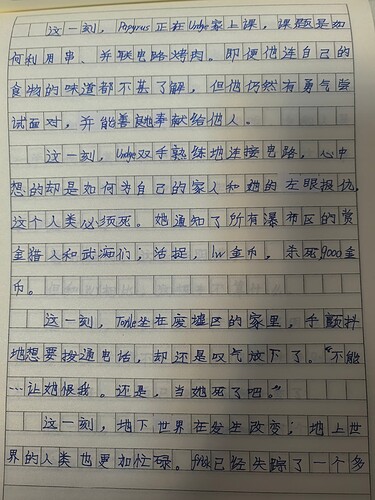 这一刻，Papyrus正在Undyne家上课，课题是如
何利用串、并联电路烤肉。即便他连自己的
食物的味道都不甚了解，但他仍然有勇气尝
试面对，并能善良地奉献给他人。
这一刻，Undyne双手熟练地连接电路，心中
想的却是如何为自己的家人和她的左眼报仇。
这个人类必须死。她通知了所有瀑布区的赏
金猎人和武痴们；活捉，1w金币，杀死9000金
币。
这一刻，Toriel坐在废墟区的家里，手颤抖
地想要拨通电话，却还是叹气放下了。“不能
…让她恨我。还是，当她死了吧。”
这一刻，地下世界在发生改变；地上世
界的人类也更加忙碌。已经失踪了一个多